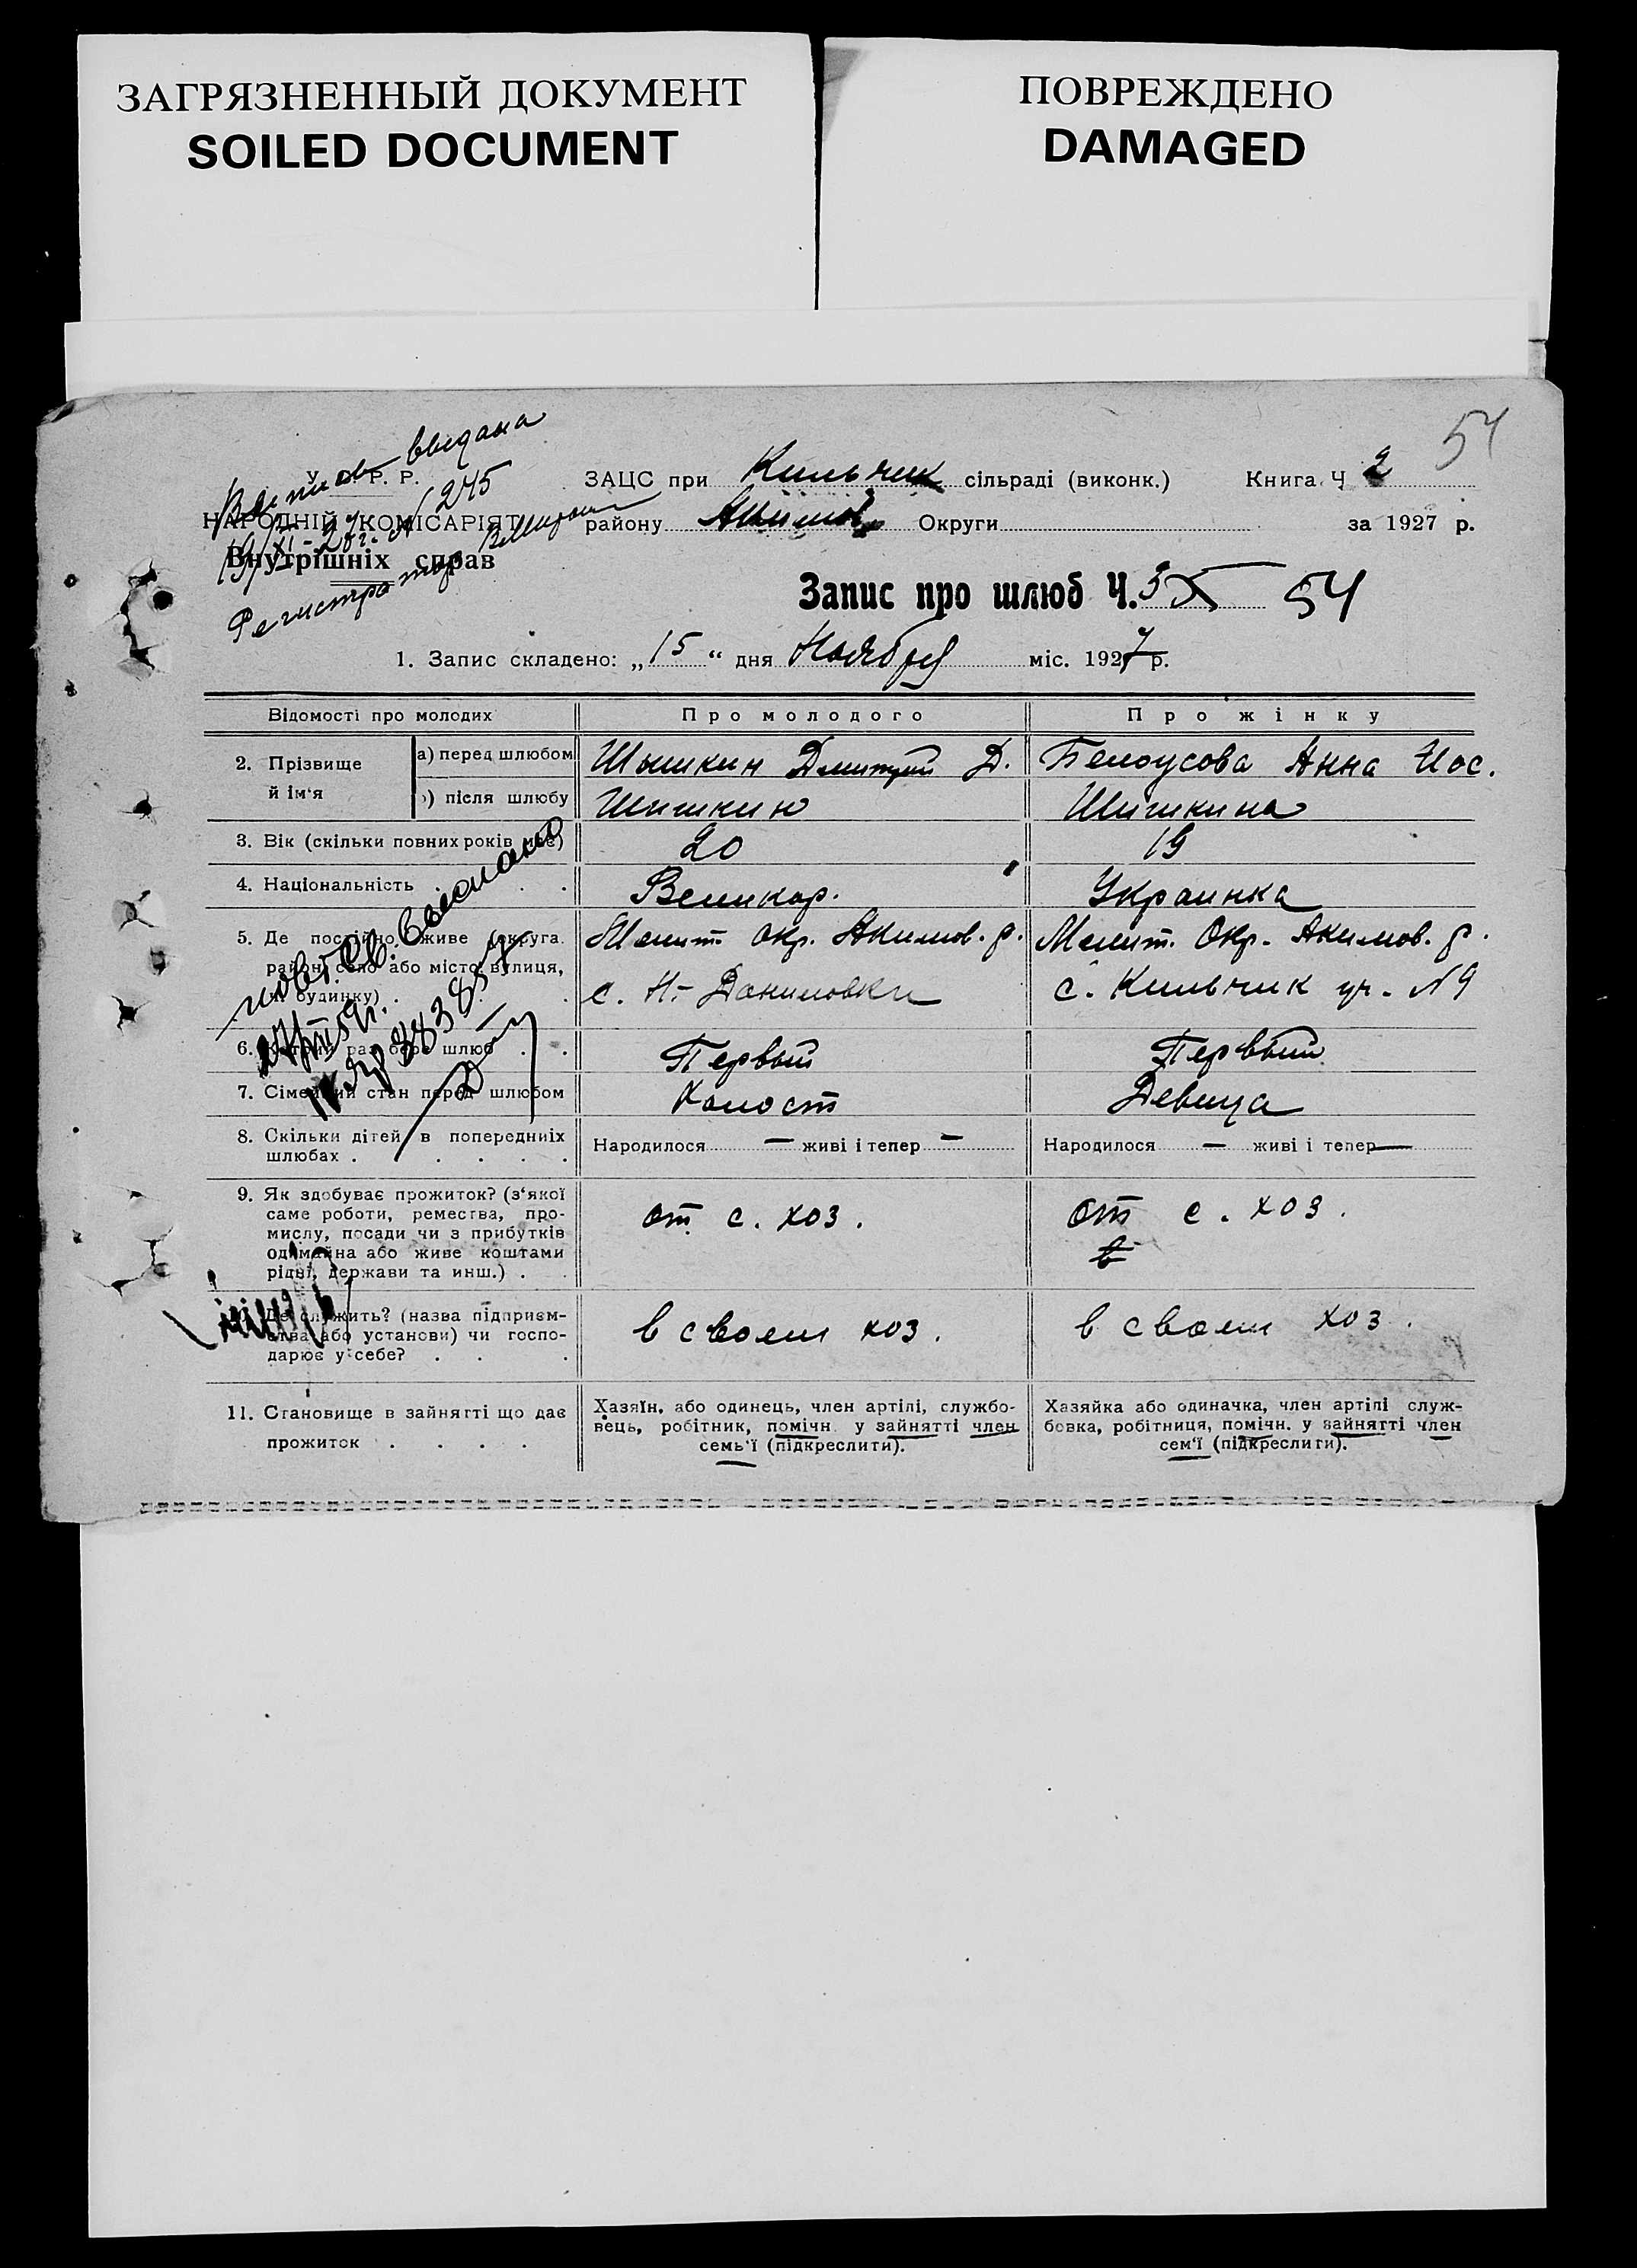 ЗАГРЯЗНЕННЫЙ ДОКУМЕНТ
SOILED DOCUMENT
ПОВРЕЖДЕНО
DAMAGED
54
выдана
У. Р. Р.
№ 245
НАРОДНІЙ КОМІСАРІЯТ
Внутрішніх справ
Регистратор
ЗАЦС при Кильчик сільраді (виконк.) Книга Ч 2
району Акимов Округи за 1927 р.
Запис про шлюб Ч. 54
1. Запис складено: „15“ дня Ноября міс. 1927 р.
Відомості про молодих Про молодого Про жінку
2. Прізвище й ім'я
а) перед шлюбом Шышкин Дмитрий Д. Белоусова Анна Иос.
б) після шлюбу Шишкин Шишкина
3. Вік (скільки повних років має) 20 19
4. Національність . . Великор. Украинка
5. Де постійно живе (округа. Мелит. окр. Акимов. р. Мелит. Окр. Акимов. р.
район, село або місто, вулиця,
ч. будинку) . . . с. Н-Даниловки с. Кильчик уч. № 9
6. Котрий раз бере шлюб . . Первый Первый
7. Сімейний стан перед шлюбом Холост Девица
8. Скільки дітей в попередніх Народилося — живі і тепер — Народилося — живі і тепер —
шлюбах . . . . . .
9. Як здобуває прожиток? (з'якої
саме роботи, ремества, про-
мислу, посади чи з прибутків
од майна або живе коштами
рідні, держави та инш.) . . от с. хоз. от с. хоз.
Де служить? (назва підприєм-
ства або установи) чи госпо-
дарює у себе? . . . в своем хоз. в своем хоз.
11. Становище в зайнятті що дає
прожиток . . . .
Хазяїн, або одинець, член артілі, службо-
вець, робітник, помічн. у зайнятті член
семь'ї (підкреслити).
Хазяйка або одиначка, член артілі служ-
бовка, робітниця, помічн. у зайнятті член
сем'ї (підкреслити).